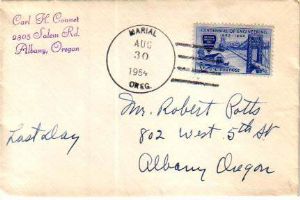 Carl H. Coonet
2305 Salem Rd.
Albany, Oregon
MARIAL
AUG
30
1954
OREG.
CENTENNIAL OF ENGINEERING
Mr. Robert Potts
802 West 5th St
Albany Oregon
Last Day